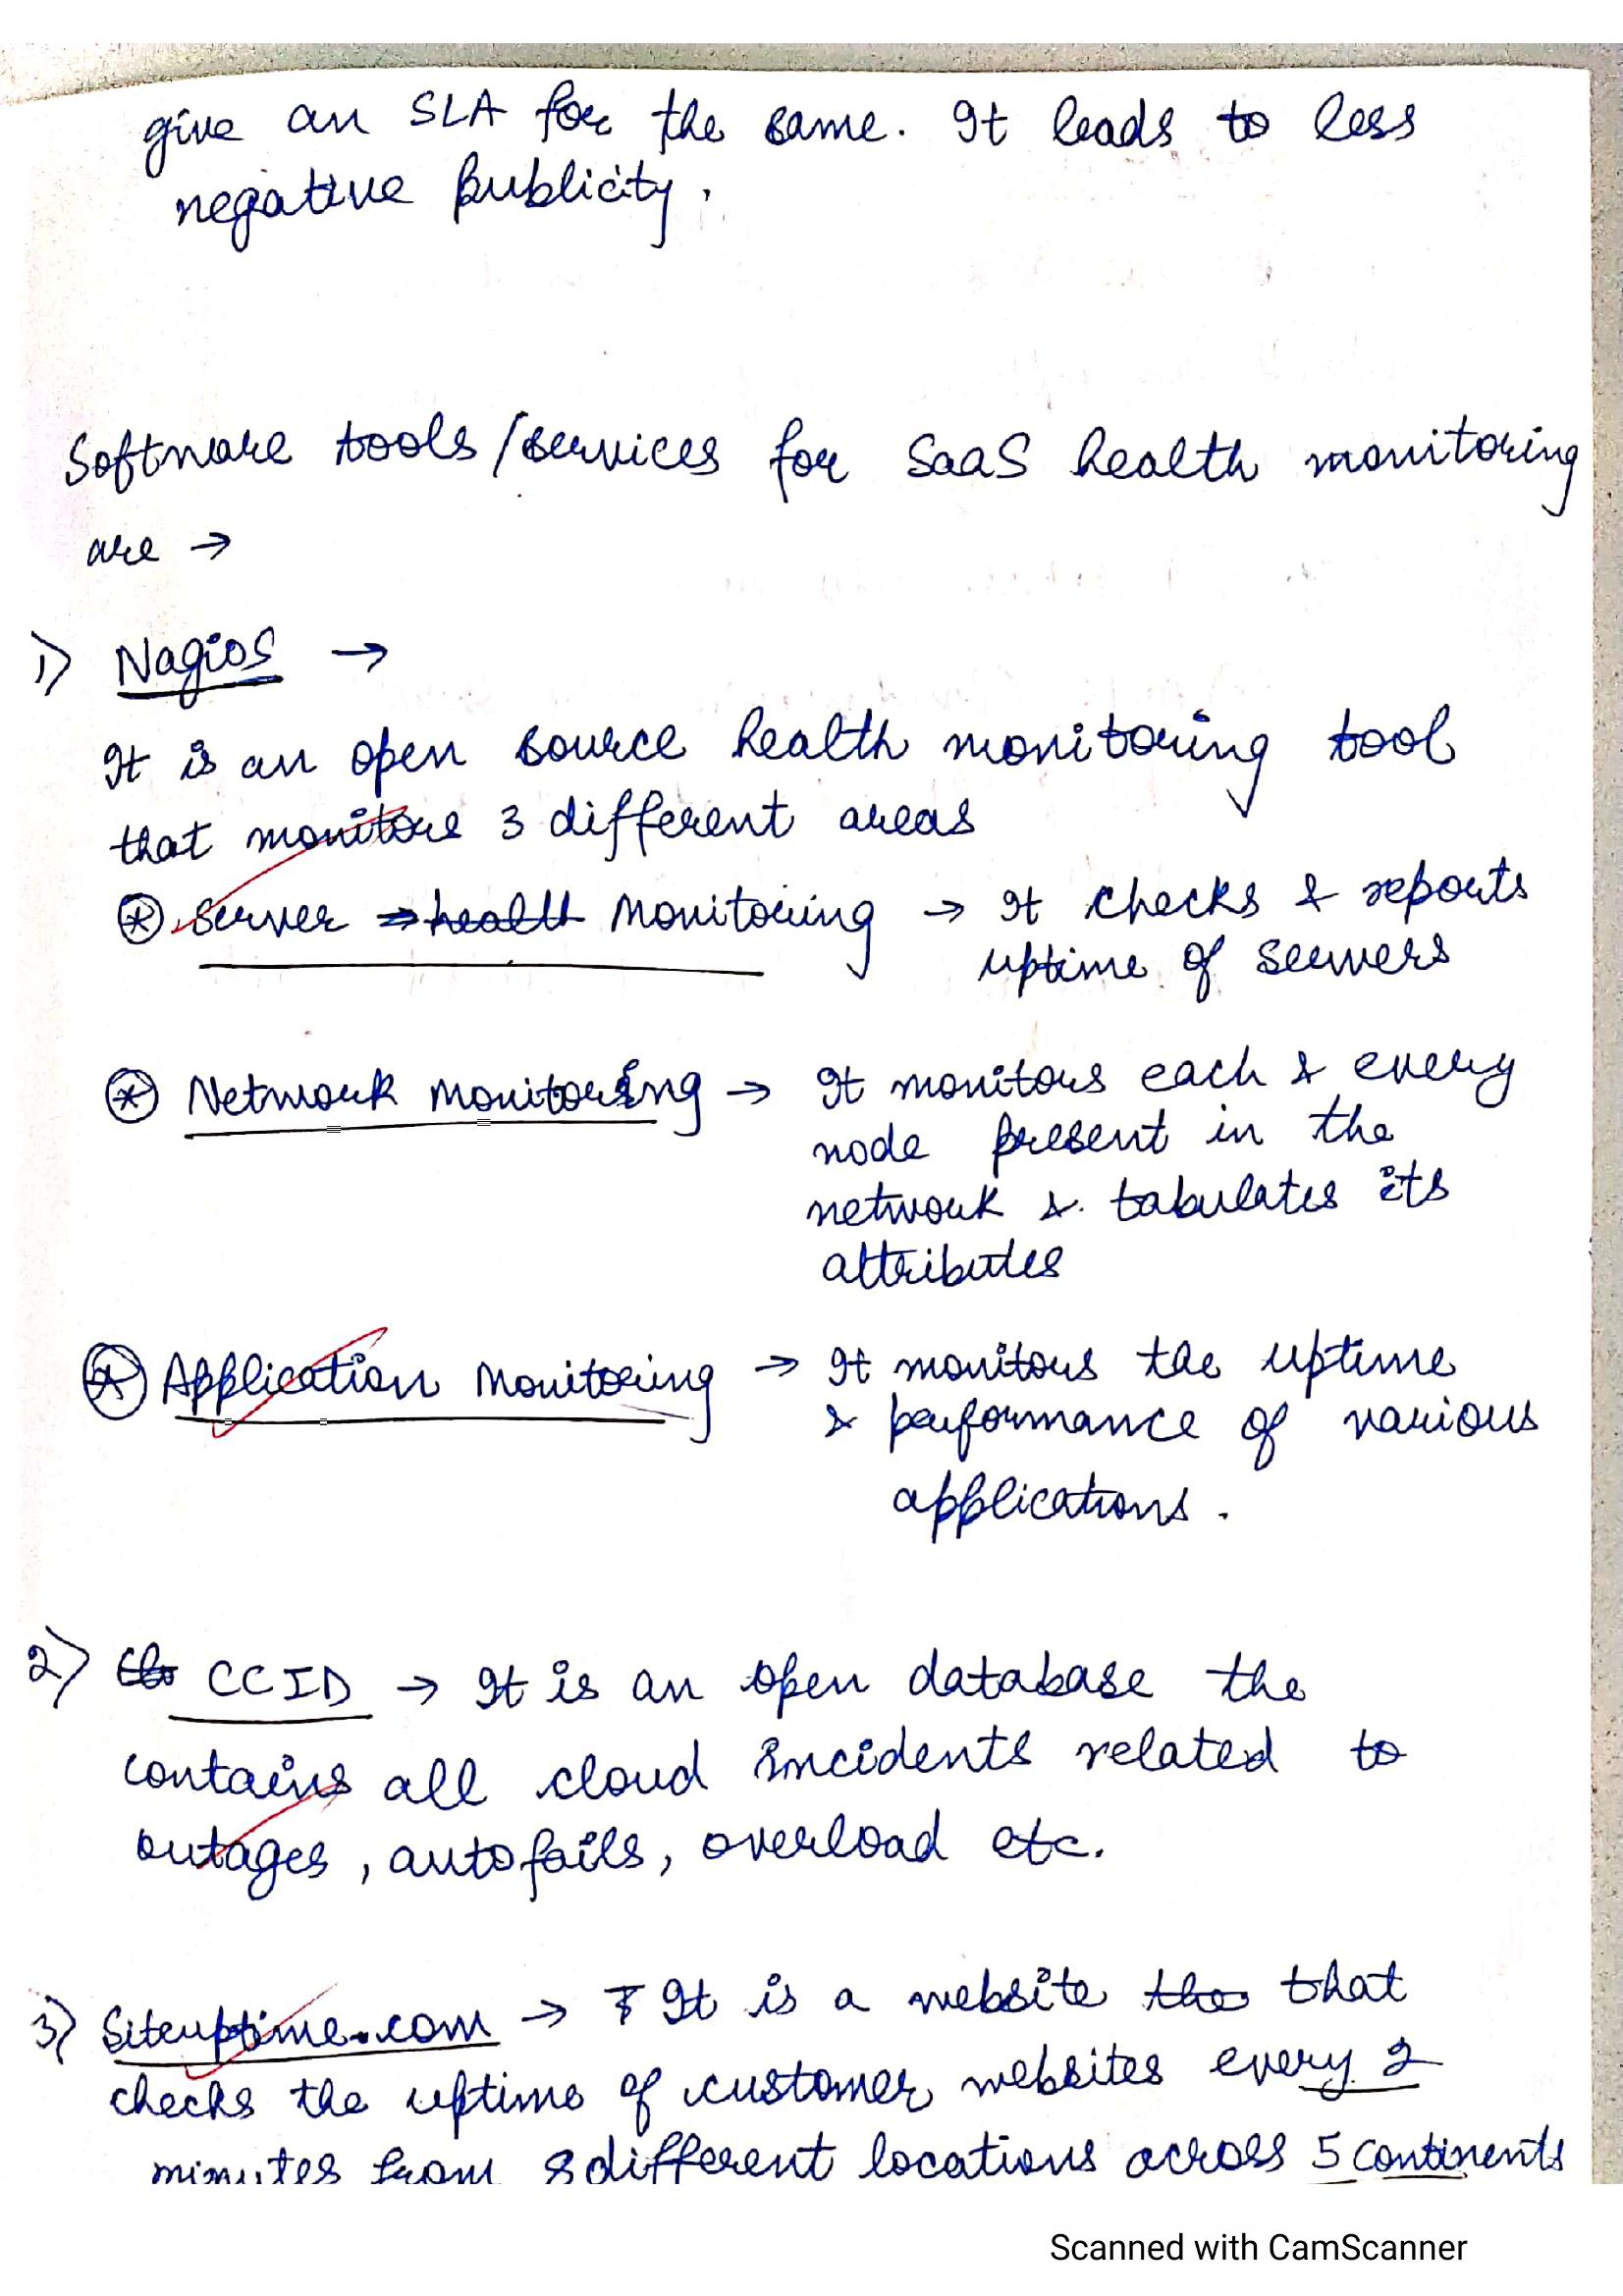 give an SLA for the same. It leads to less
negative publicity.
Software tools/services for SaaS health monitoring
are →
1) Nagios →
It is an open source health monitoring tool
that monitors 3 different areas
⊛ Server → health Monitoring → It checks & reports
uptime of servers
⊛ Network Monitoring → It monitors each & every
node present in the
network & tabulates its
attributes
⊛ Application Monitoring → It monitors the uptime
& performance of various
applications.
2) CCID → It is an open database the
contains all cloud incidents related to
outages, autofails, overload etc.
3) Siteuptime.com → It is a website tha that
checks the uptime of customer websites every 2
minutes from 8 different locations across 5 continents
Scanned with CamScanner